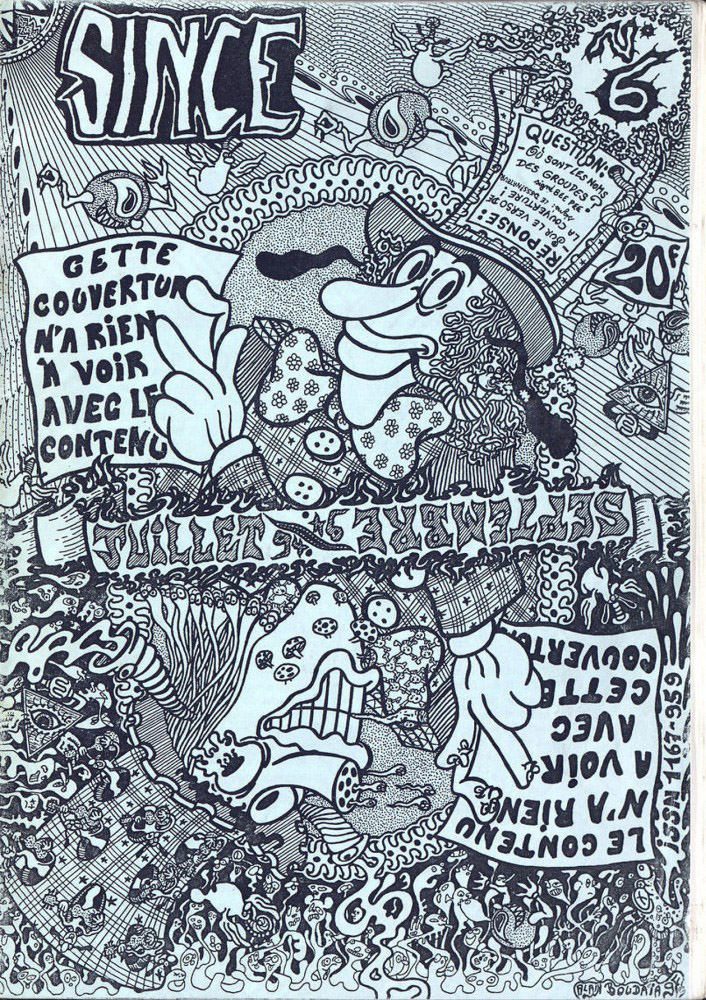 SINCE
N° 6
QUESTION:
OÙ SONT LES NOMS
DES GROUPES ?
RÉPONSE:
SUR LE VERSO DE
LA COUVERTURE
20F
CETTE
COUVERTUR
N'A RIEN
A VOIR
AVEC LE
CONTENU
JUILLET
SEPTEMBRE
LE CONTENU
N'A RIEN
A VOIR
AVEC
CETTE
COUVERTUR
ISSN 1167-959